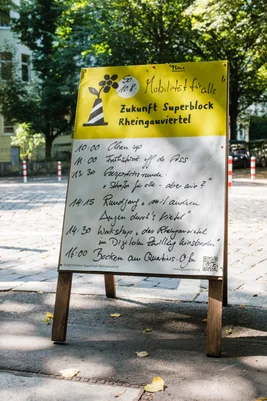 So
10.8.
Mobilität für alle
Zukunft Superblock
Rheingauviertel
10:00 Clean up
11:00 Frühstück auf de Gass
13:30 Gesprächsrunde
"Straße für alle - aber wie?"
14:15 Rundgang "mit anderen
Augen durch's Viertel"
14:30 Workshop "das Rheingauviertel
im Digitalen Zwilling Wiesbaden"
16:00 Backen am Quartiers-Ofen